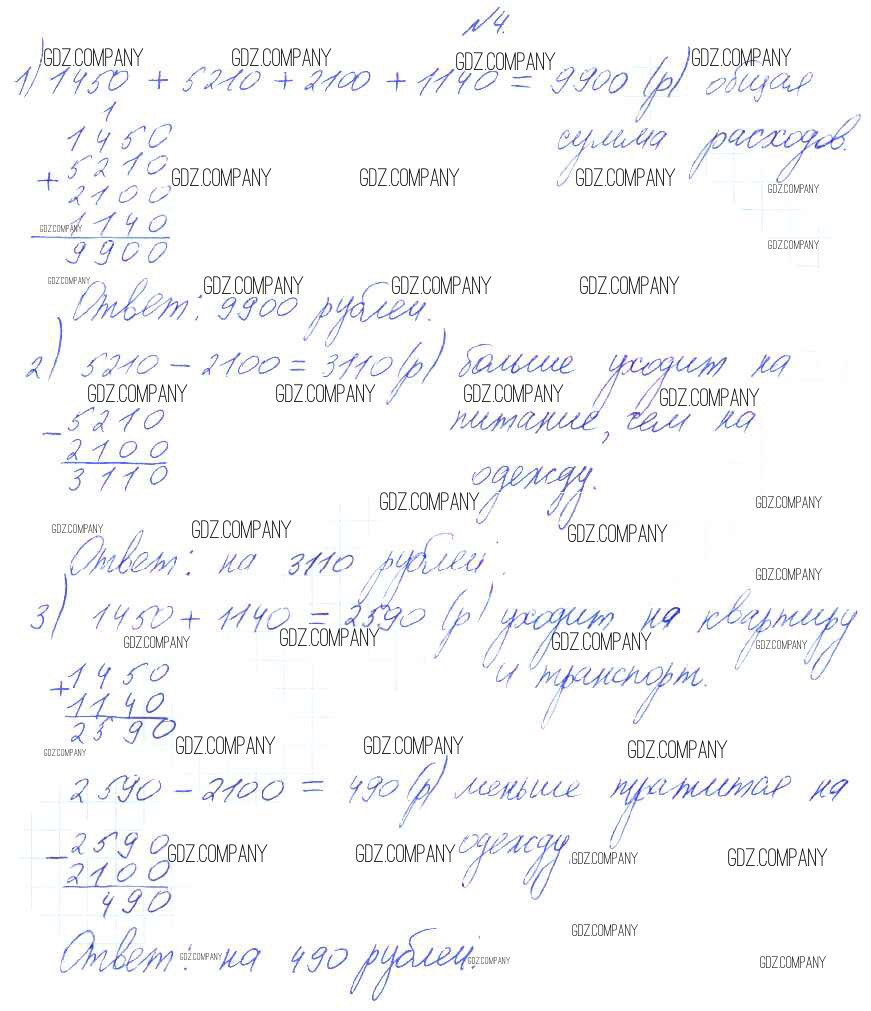 №4.
GDZ.COMPANY GDZ.COMPANY GDZ.COMPANY GDZ.COMPANY
1) 1450 + 5210 + 2100 + 1140 = 9900 (р) общая
1
1450 сумма расходов.
+ 5210 GDZ.COMPANY GDZ.COMPANY GDZ.COMPANY
2100 GDZ.COMPANY
1140 GDZ.COMPANY
9900 GDZ.COMPANY
GDZ.COMPANY GDZ.COMPANY GDZ.COMPANY GDZ.COMPANY
Ответ: 9900 рублей.
2) 5210 – 2100 = 3110 (р) больше уходит на
GDZ.COMPANY GDZ.COMPANY GDZ.COMPANY GDZ.COMPANY
– 5210 питание, чем на
2100
3110 одежду.
GDZ.COMPANY GDZ.COMPANY
GDZ.COMPANY GDZ.COMPANY GDZ.COMPANY
Ответ: на 3110 рублей.
GDZ.COMPANY
3) 1450 + 1140 = 2590 (р) уходит на квартиру
GDZ.COMPANY GDZ.COMPANY GDZ.COMPANY GDZ.COMPANY
+ 1450 и транспорт.
1140
2590
GDZ.COMPANY GDZ.COMPANY GDZ.COMPANY GDZ.COMPANY
2590 – 2100 = 490 (р) меньше на
– 2590 одежду
GDZ.COMPANY GDZ.COMPANY GDZ.COMPANY GDZ.COMPANY
2100
490
GDZ.COMPANY
Ответ: на 490 рублей.
GDZ.COMPANY GDZ.COMPANY GDZ.COMPANY